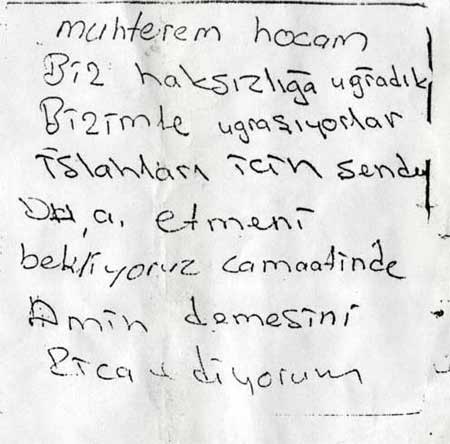 muhterem hocam
Biz haksızlığa uğradık
Bizimle uğraşıyorlar
islahları için senden
Dua etmeni
bekliyoruz camaatinde
Amin demesini
Rica ediyorum